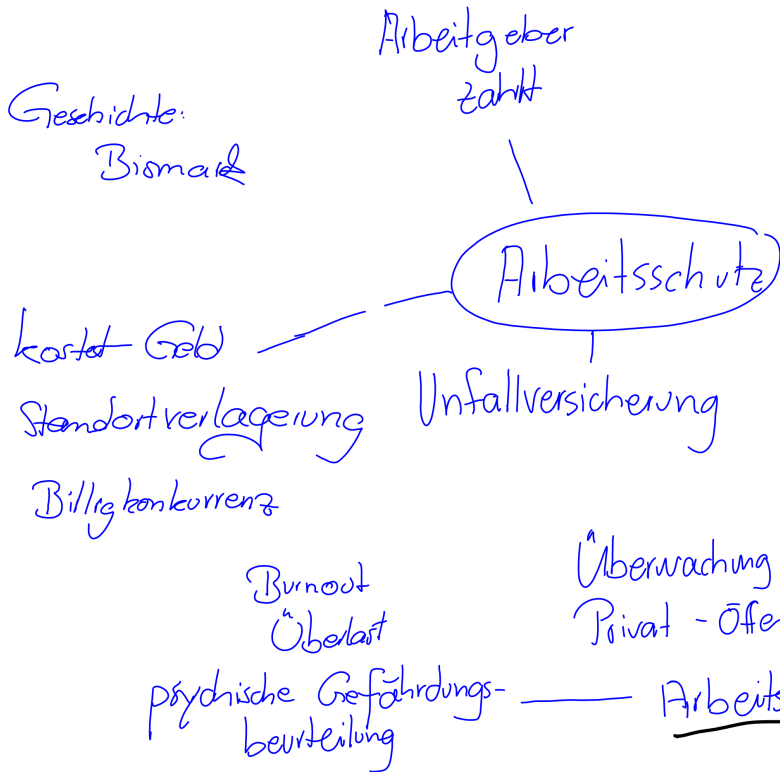 Arbeitgeber
zahlt
Geschichte:
Bismark
Arbeitsschutz
kostet Geld
Standortverlagerung
Billigkonkurrenz
Unfallversicherung
Burnout
Überlast
psychische Gefährdungs-
beurteilung
Überwachung
Privat - Öffe
Arbeits